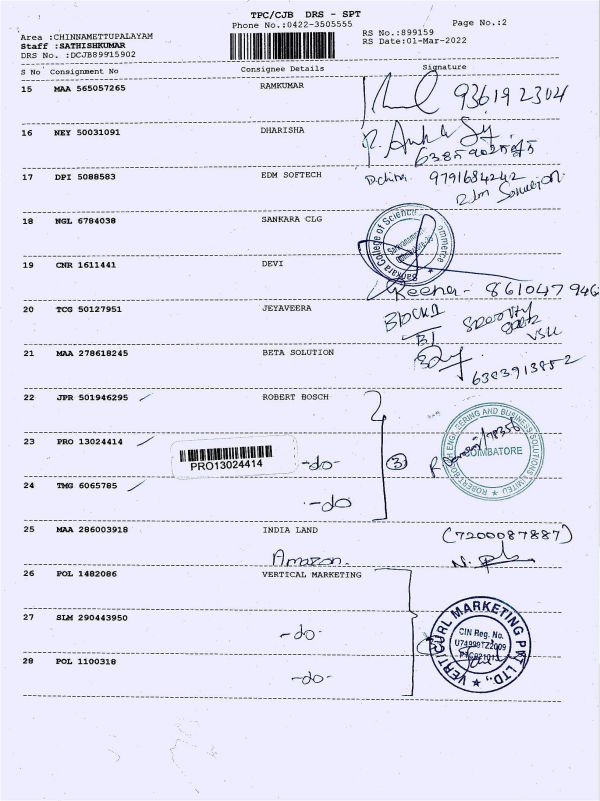 TPC/CJB DRS - SPT
Phone No.:0422-3505555
Page No.:2
Area :CHINNAMETTUPALAYAM
Staff :SATHISHKUMAR
DRS No. :DCJB89915902
RS No.:899159
RS Date:01-Mar-2022
S No Consignment No Consignee Details Signature
15 MAA 565057265 RAMKUMAR
936192304
16 NEY 50031091 DHARISHA
17 DPI 5088583 EDM SOFTECH
9791684242
18 NGL 6784038 SANKARA CLG
Sankara College of Science Commerce
19 CNR 1611441 DEVI
Reena - 861047946
20 TCG 50127951 JEYAVEERA
Block1
B1
21 MAA 278618245 BETA SOLUTION
6383913852
22 JPR 501946295 ROBERT BOSCH
23 PRO 13024414
PRO13024414
-do-
3
ROBERT BOSCH ENGINEERING AND BUSINESS SOLUTIONS LIMITED
COIMBATORE
24 TMG 6065785
-do
25 MAA 286003918 INDIA LAND
(7200087887)
Amazon.
26 POL 1482086 VERTICAL MARKETING
27 SLM 290443950
-do-
VERTICURL MARKETING PVT LTD.,
CIN Reg. No.
U74999TZ2009
28 POL 1100318
-do-